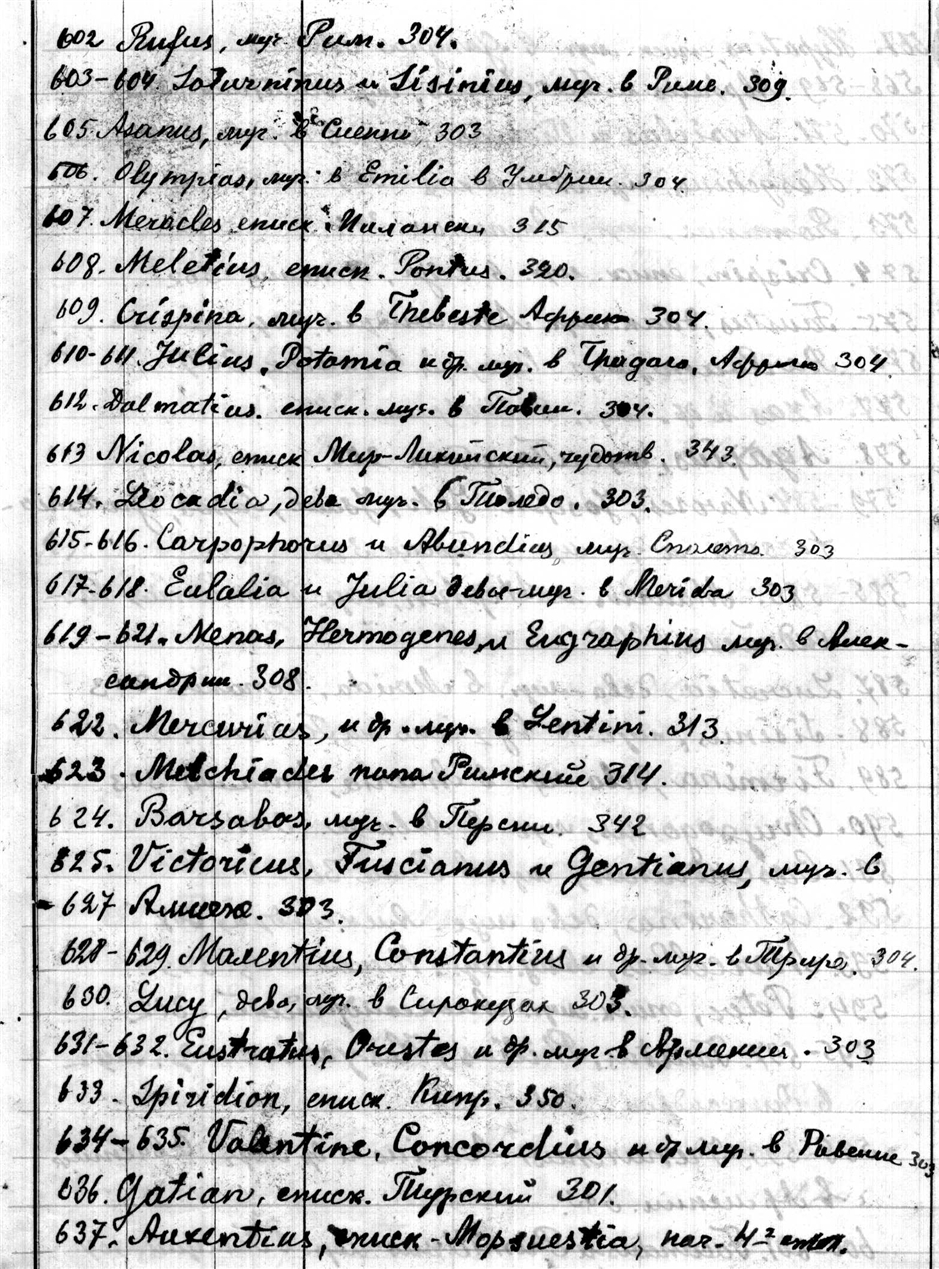 602 Rufus, муч. Рим. 304.
603-604. Saturninus и Sisinius, муч. в Риме. 309.
605. Asanus, муч. в Сиенни 303
606. Olympias, муч. в Emilia в Умбрии. 304
607. Meracles еписк. Миланский 315
608. Meletius, еписк. Pontus. 320.
609. Crispina, муч. в Thebeste Африка 304.
610-611. Julius, Potamia и др. муч. в Thagara, Африка 304
612. Dalmatius. еписк. муч. в Павии. 304.
613 Nicolas, еписк Мир-Ликийский, чудотв. 343.
614. Leocadia, дева муч. в Толедо. 303.
615-616. Carpophorus и Abundius, муч. Сполето. 303
617-618. Eulalia и Julia девы-муч. в Merida 303
619-621. Menas, Hermogenes, и Eugraphius муч. в Алек-
сандрии. 308.
622. Mercurias, и др. муч. в Lentini. 313.
623. Melchiades папа Римский 314.
624. Barsabas, муч. в Персии. 342
625. Victoricus, Fuscianus и Gentianus, муч. в
-627 Амиене. 303.
628-629. Maxentius, Constantius и др. муч. в Трире. 304.
630. Lucy, дева, муч. в Сиракузах 303.
631-632. Eustratus, Orestes и др. муч. в Армении. 303
633. Spiridion, еписк. Кипр. 350.
634-635. Valentine, Concordius и др муч. в Равенне 303
636. Gatian, еписк. Турский 301.
637. Auxentius, еписк. Mopsuestia, нач. 4-